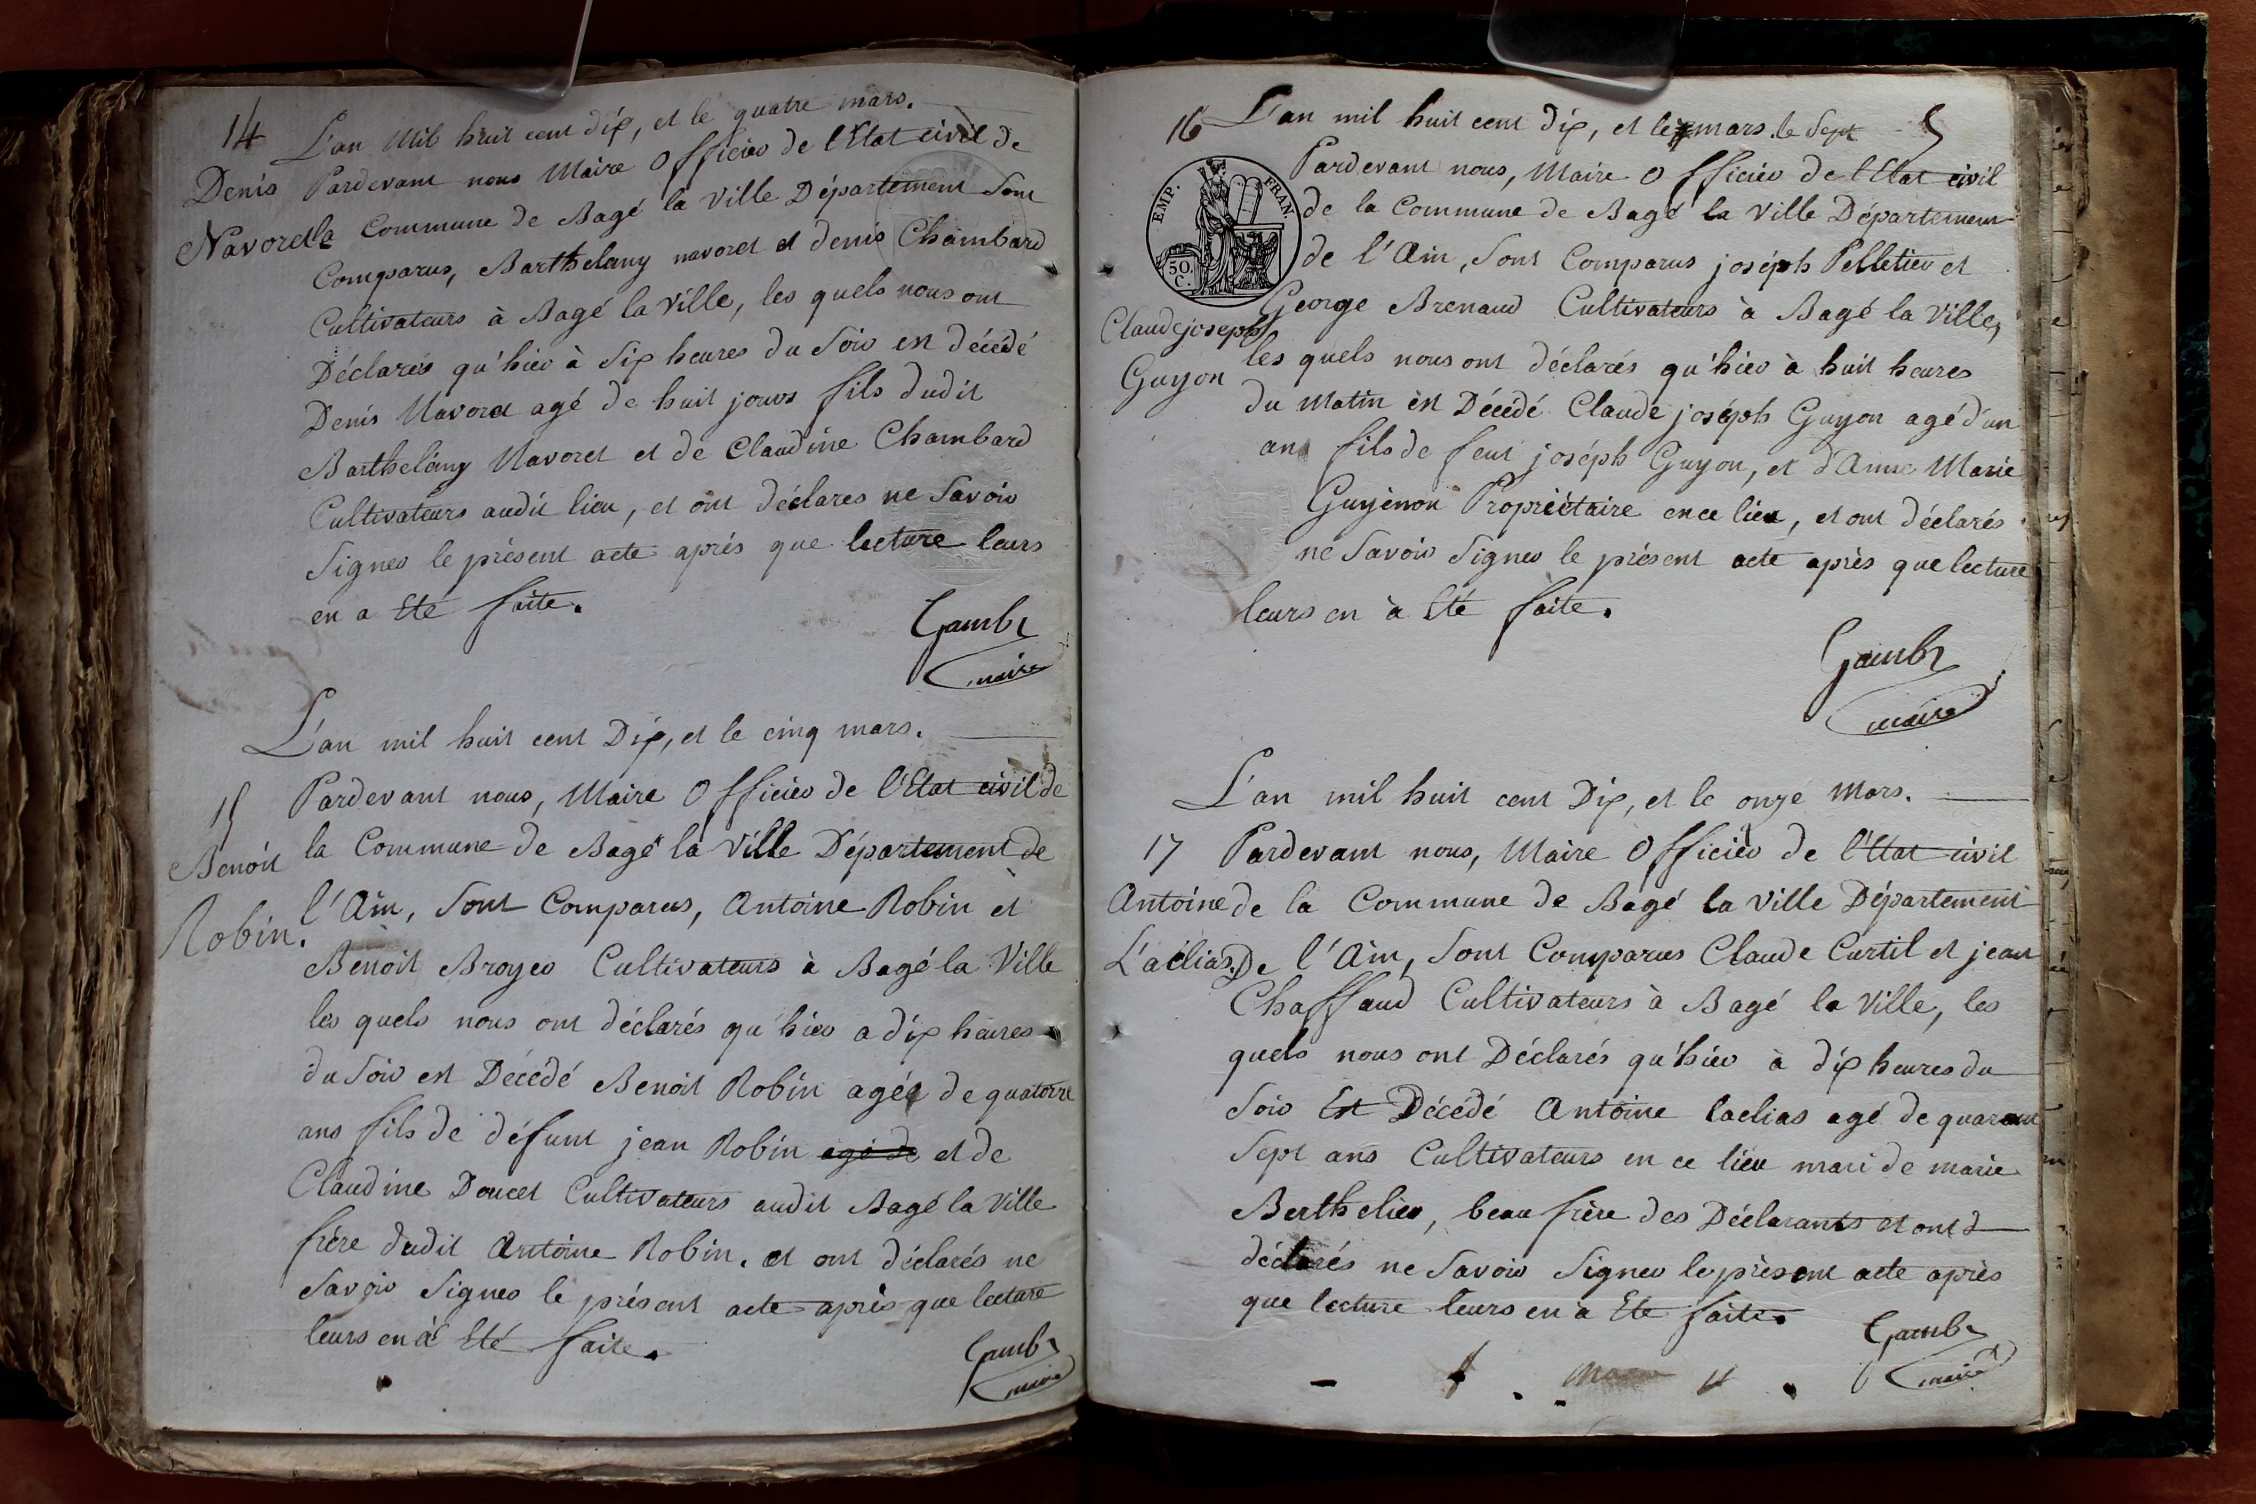 14
L'an Mil huit cent dix, et le quatre mars.
Denis
Navoret
Pardevant nous Maire Officier de l'Etat civil de
la Commune de Bagé la ville Département Sont
Comparus, Barthelemy navoret et denis Chambard
Cultivateurs à Bagé la Ville, les quels nous ont
Déclarés qu'hier à Six heures du Soir est décédé
Denis Navoret agé de huit jours fils dudit
Barthelémy Navoret et de Claudine Chambard
Cultivateurs audit lieu, et ont déclares ne Savoir
Signer le présent acte aprés que lecture leurs
en a Eté faite.
Gambr
maire
L'an mil huit cent Dix, et le cinq mars.
15
Benoit
Robin.
Pardevant nous, Maire Officier de l'Etat civil de
la Commune de Bagé la Ville Département de
l'Ain, Sont Comparus, Antoine Robin et
Benoit Broyer Cultivateurs à Bagé la Ville
les quels nous ont déclarés qu'hier a dix heures
du Soir est Décédé Benoit Robin agée de quatorze
ans fils de défunt jean Robin agé de et de
Claudine Doucet Cultivateurs audit Bagé la Ville
frére dudit Antoine Robin. et ont déclarés ne
Savoir Signer le présent acte aprés que lecture
leurs en à Eté faite.
Gambr
maire
16
L'an mil huit cent dix, et le mars le Sept
5
EMP. FRAN.
50.
C.
Claude joseph
Guyon
Pardevant nous, Maire Officier de l'Etat civil
de la Commune de Bagé la Ville Département
de l'Ain, Sont Comparus joséph Pelletier et
George Brenaud Cultivateurs à Bagé la Ville,
les quels nous ont déclarés qu'hier à huit heures
du Matin èst Décédé Claude joséph Guyon agé d'un
an fils de feut joséph Guyon, et d'Anne Marie
Guyènon Propriétaire en ce lieu, et ont déclarés
ne Savoir Signer le présent acte aprés que lecture
leurs en à Eté faite.
Gambr
maire
L'an mil huit cent Dix, et le onze Mars.
17
Antoine
L'aclias.
Pardevant nous, Maire Officier de l'Etat civil
de la Commune de Bagé la Ville Département
De l'Ain, Sont Comparus Claude Curtil et jean
Chaffaud Cultivateurs à Bagé la Ville, les
quels nous ont Déclarés qu'hier à dix heures du
Soir Est Décédé Antoine laclias agé de quarante
Sept ans Cultivateurs en ce lieu mari de marie
Berthelier, beau frère des Déclarants et ont d
déclarés ne Savoir Signer le présent acte aprés
que lecture leurs en à Eté faite.
Gambr
maire